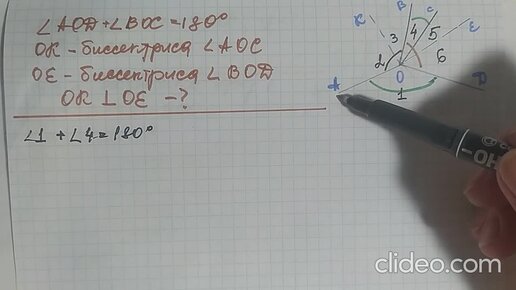 ∠AOD+∠BOC=180°
OK - биссектриса ∠AOC
OE - биссектриса ∠BOD
OK ⊥ OE - ?
∠1 + ∠4 = 180°
K
B
C
E
3
4
5
2
6
O
A
1
D
HO
clideo.com